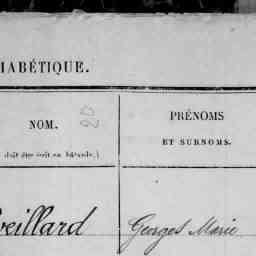 HABÉTIQUE.
NOM. 20
PRÉNOMS
ET SURNOMS.
doit être écrit en bâtarde.)
veillard Georges Marie